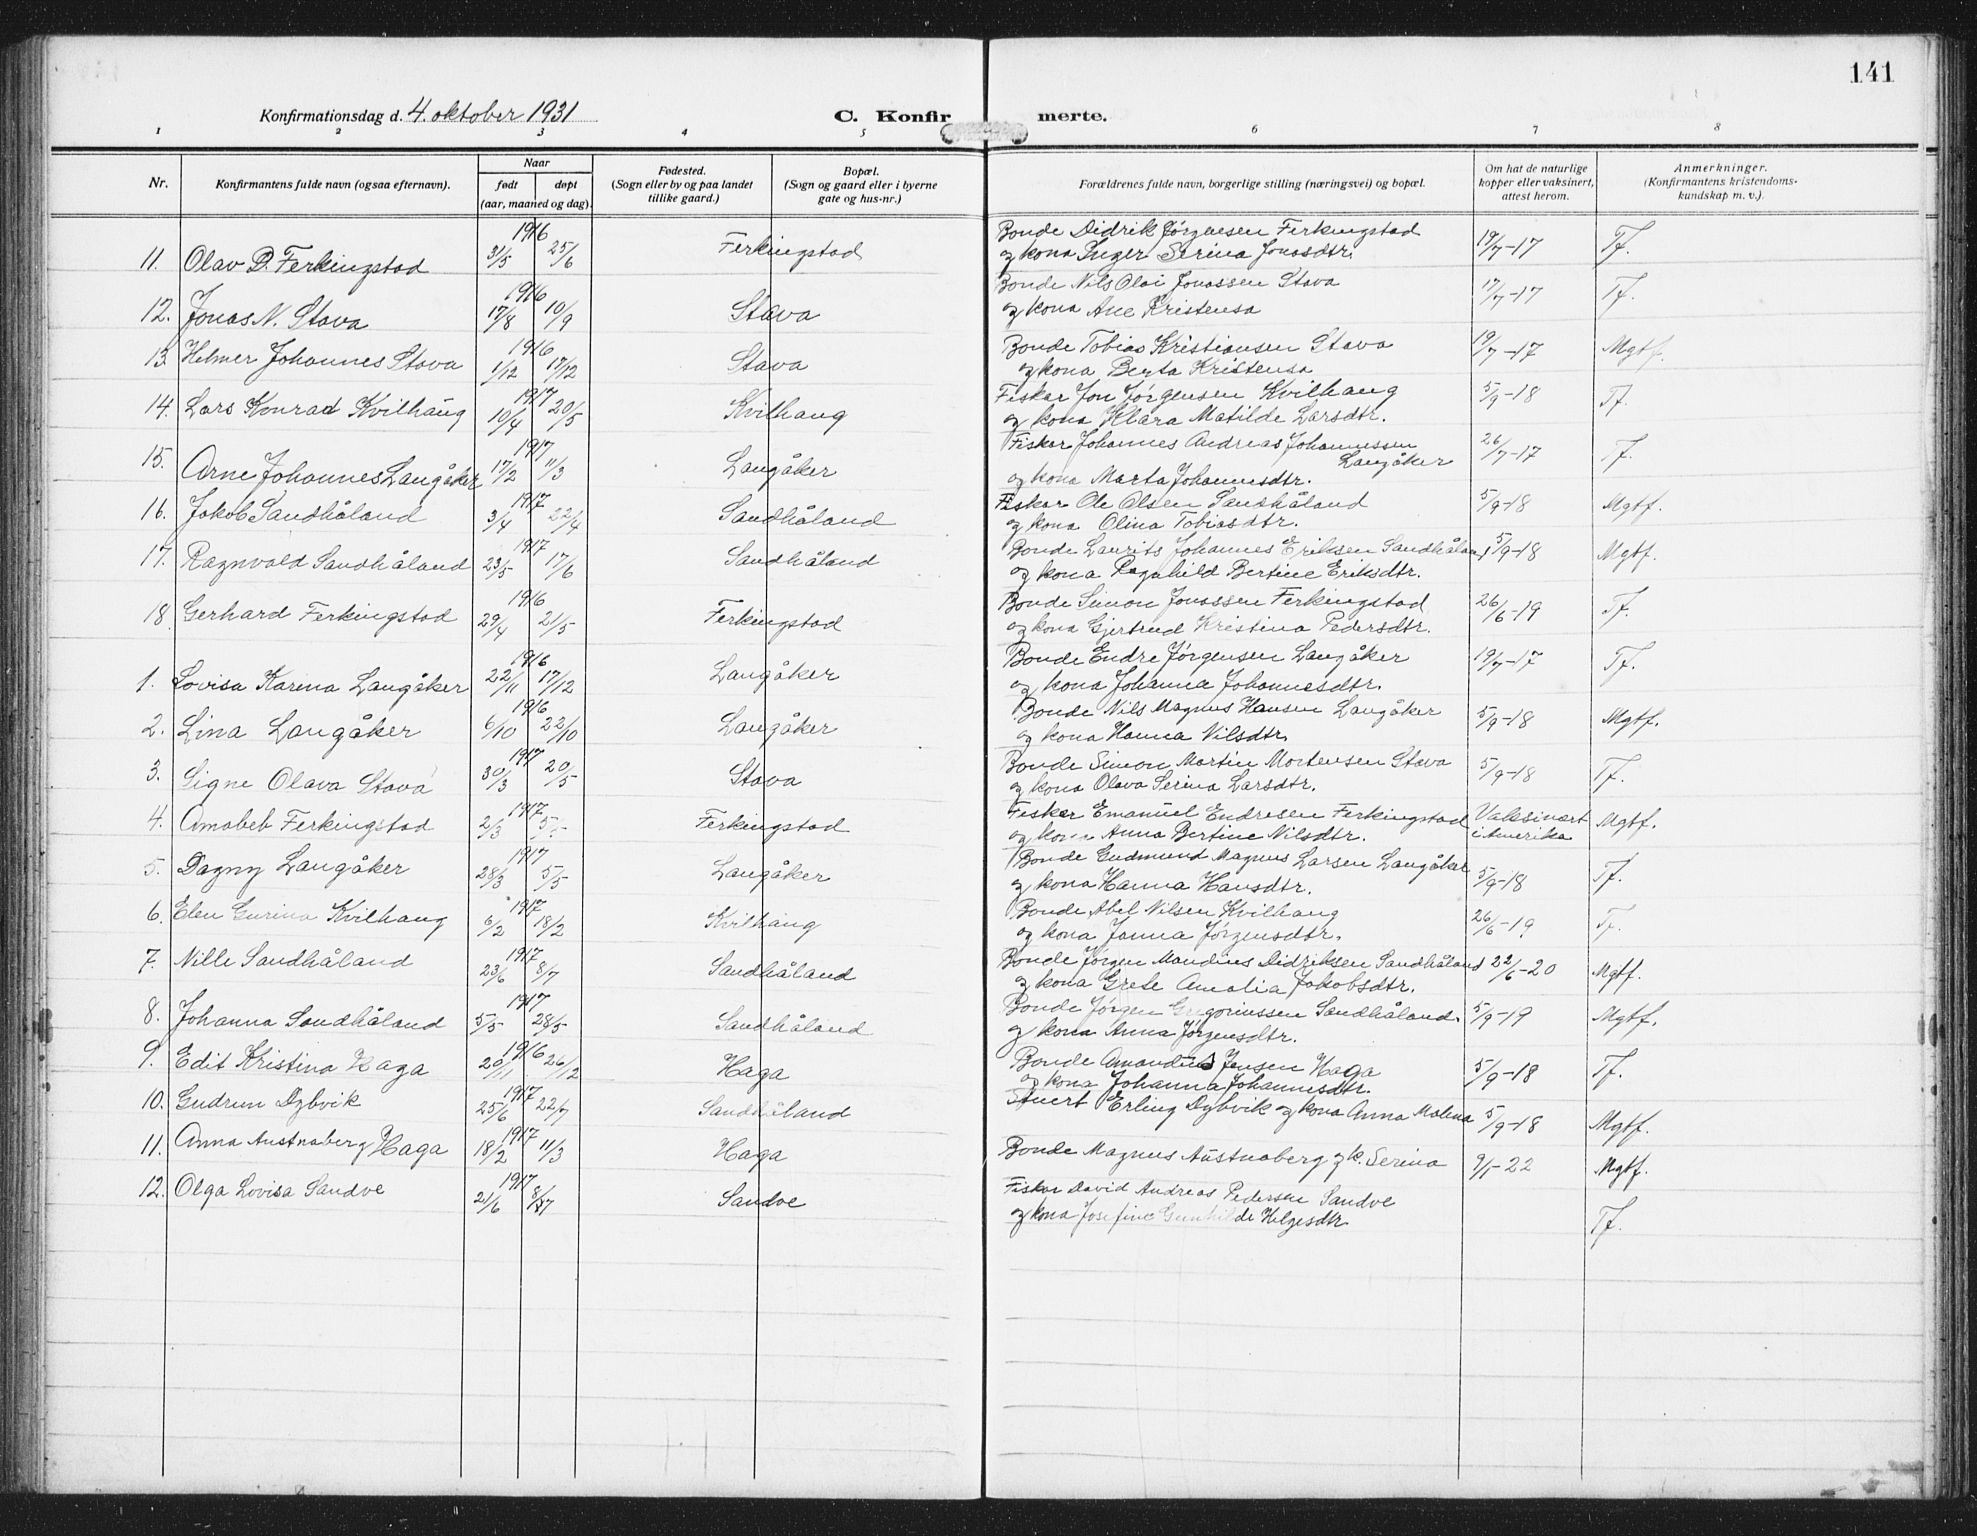 141
Konfirmationsdag d. 4. oktober 1931
C. Konfir merte.
1 2 3 4 5 6 7 8
Nr.
Konfirmantens fulde navn (ogsaa efternavn).
Naar
født døpt
(aar, maaned og dag).
Fødested.
(Sogn eller by og paa landet
tillike gaard.)
Bopæl.
(Sogn og gaard eller i byerne
gate og hus-nr.)
Forældrenes fulde navn, borgerlige stilling (næringsvei) og bopæl.
Om hat de naturlige
kopper eller vaksinert,
attest herom.
Anmerkninger.
(Konfirmantens kristendoms-
kundskap m. v.).
1916 Bonde Didrik Jørgensen Ferkingstad
11. Olav D. Ferkingstad 31/5 25/6 Ferkingstad og kona Inger Serina Jonasdtr. 19/7-17 Tf.
1916 Bonde Nils Olai Jonassen Stava
12. Jonas N. Stava 17/8 10/9 Stava og kona Ane Kristensa 17/7-17 Tf.
1916 Bonde Tobias Kristiansen Stava
13. Helmer Johannes Stava 1/12 17/12 Stava og kona Berta Kristensa 19/7-17 Mgtf.
1917 Fiskar Jon Jørgensen Kvilhaug
14. Lars Konrad Kvilhaug 10/4 20/5 Kvilhaug og kona Klara Matilde Larsdtr. 5/9-18 Tf.
1917 Fiskar Johannes Andreas Johannessen
Langåker
15. Arne Johannes Langåker 17/2 11/3 Langåker og kona Marta Johannesdtr. 26/7-17 Tf.
1917 Fiskar Ole Olsen Sandhåland
16. Jakob Sandhåland 3/4 22/4 Sandhåland og kona Olina Tobiasdtr. 5/9-18 Mgtf.
1917 Bonde Laurits Johannes Eriksen Sandhåland
17. Ragnvald Sandhåland 23/5 17/6 Sandhåland og kona Ragnhild Bertine Eriksdtr. 5/9-18 Mgtf.
1916 Bonde Simon Jonassen Ferkingstad
18. Gerhard Ferkingstad 29/4 21/5 Ferkingstad og kona Gjertrud Kristina Pedersdtr. 26/6-19 Tf.
1916 Bonde Endre Jørgensen Langåker
1. Lovisa Karina Langåker 22/11 17/12 Langåker og kona Johanna Johannesdtr. 19/7-17 Tf.
1916 Bonde Nils Magnus Hansen Langåker
2. Lina Langåker 6/10 22/10 Langåker og kona Hanna Nilsdtr. 5/9-18 Mgtf.
1917 Bonde Simon Martin Mortensen Stava
3. Signe Olava Stava 30/3 20/5 Stava og kona Olava Serina Larsdtr. 5/9-18 Tf.
1917 Fiskar Emanuel Endresen Ferkingstad Vaksinert
4. Ferkingstad 2/3 5/5 Ferkingstad og kona Anna Bertine Nilsdtr. i Amerika Mgtf.
1917 Bonde Gudmund Magnus Larsen Langåker
5. Dagny Langåker 28/3 5/5 Langåker og kona Hanna Hansdtr. 5/9-18 Tf.
1917 Bonde Abel Nilsen Kvilhaug
6. Elen Gurina Kvilhaug 6/2 18/2 Kvilhaug og kona Janna Jørgensdtr. 26/6-19 Tf.
1917 Bonde Jørgen Mandius Didriksen Sandhåland
7. Nille Sandhåland 23/6 8/7 Sandhåland og kona Grete Amalia Jakobsdtr. 22/6-20 Mgtf.
1917 Bonde Jørgen Gregoriussen Sandhåland.
8. Johanna Sandhåland 5/5 28/5 Sandhåland og kona Anna Jørgensdtr. 5/9-19 Mgtf.
1916 Bonde Amandus Jensen Haga
9. Edit Kristina Haga 20/11 26/12 Haga og kona Johanna Johannesdtr. 5/9-18 Tf.
1917
10. Gudrun Dybvik 25/6 22/7 Sandhåland Stuert Erling Dybvik og kona Anna Malena 5/9-18 Mgtf.
1917
11. Anna Austnaberg Haga 18/2 11/3 Haga Bonde Magnus Austnaberg og k. Serina 9/1-22 Mgtf.
1917 Fiskar David Andreas Pedersen Sandve
12. Olga Lovisa Sandve 21/6 Sandve og kona Josefine Gunhilde Helgesdtr Tf.